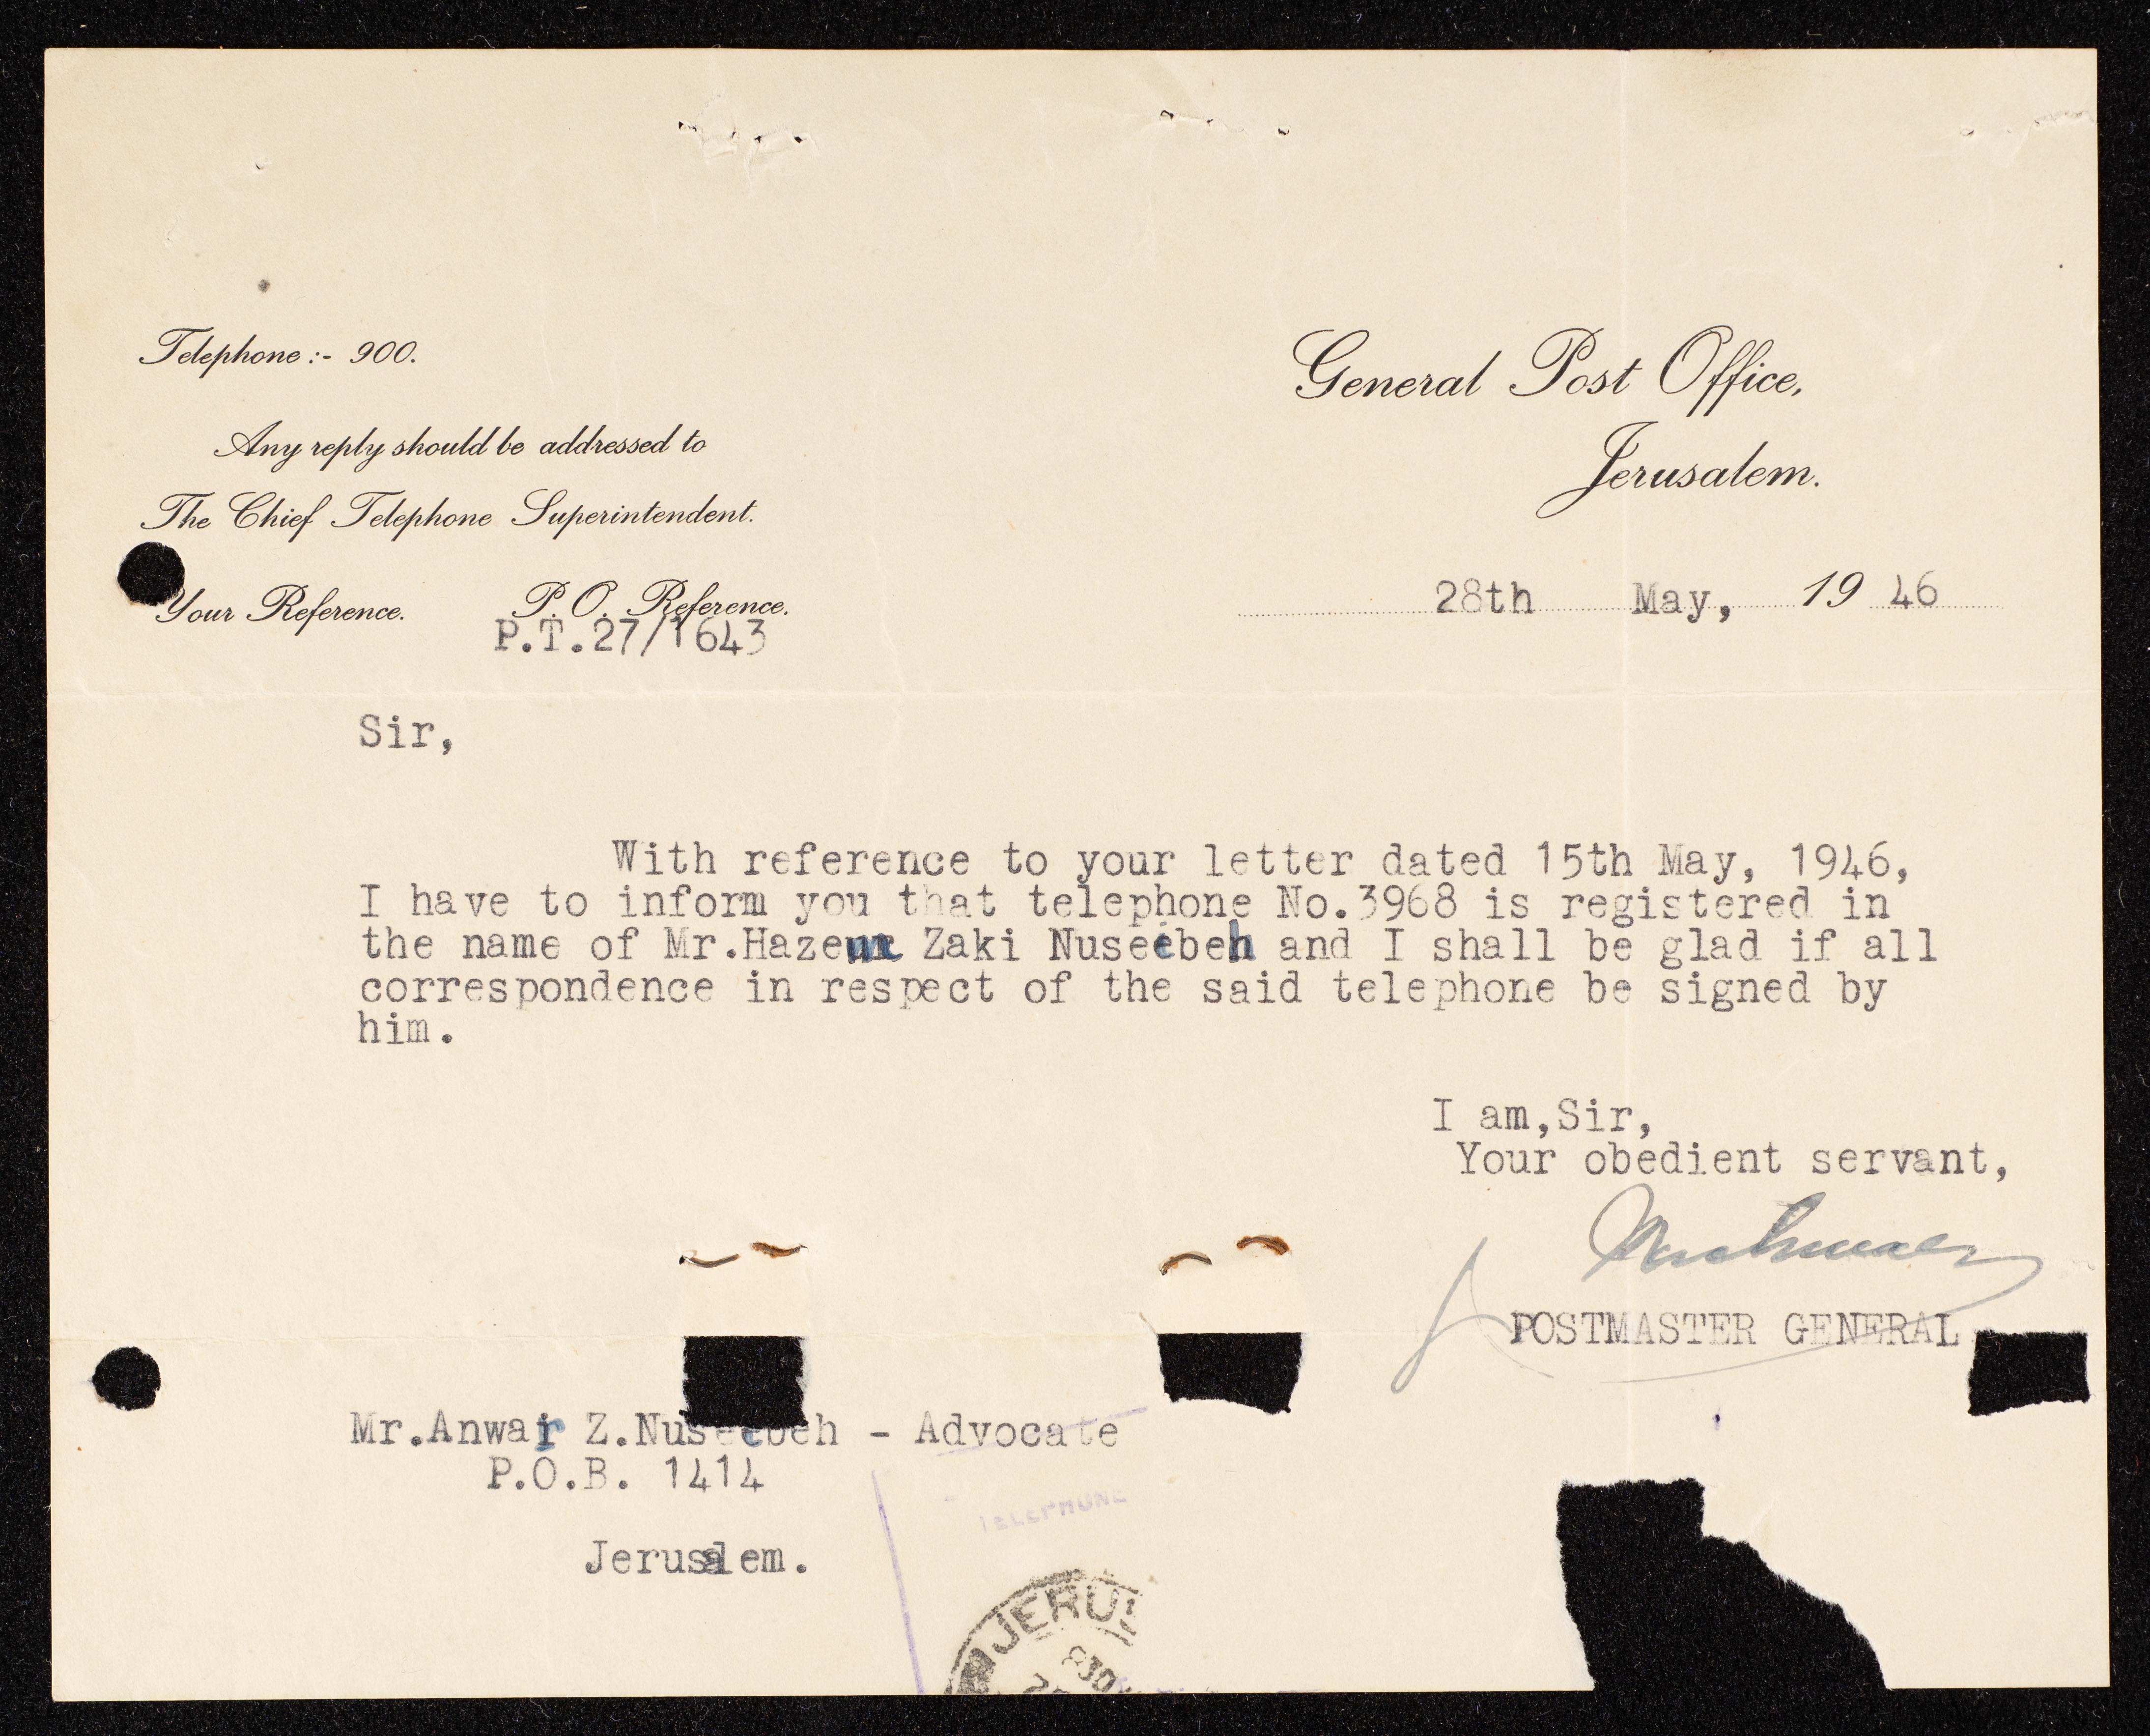 Telephone :- 900.
General Post Office,
Jerusalem.
Any reply should be addressed to
The Chief Telephone Superintendent.
Your Reference. P. O. Reference.
P.T.27/1643
28th May, 19 46
Sir,
With reference to your letter dated 15th May, 1946,
I have to inform you that telephone No.3968 is registered in
the name of Mr.Hazem Zaki Nuseibeh and I shall be glad if all
correspondence in respect of the said telephone be signed by
him.
I am,Sir,
Your obedient servant,
POSTMASTER GENERAL
Mr.Anwar Z.Nuseibeh - Advocate
P.O.B. 1414
Jerusalem.
TELEPHONE
JERUS
830